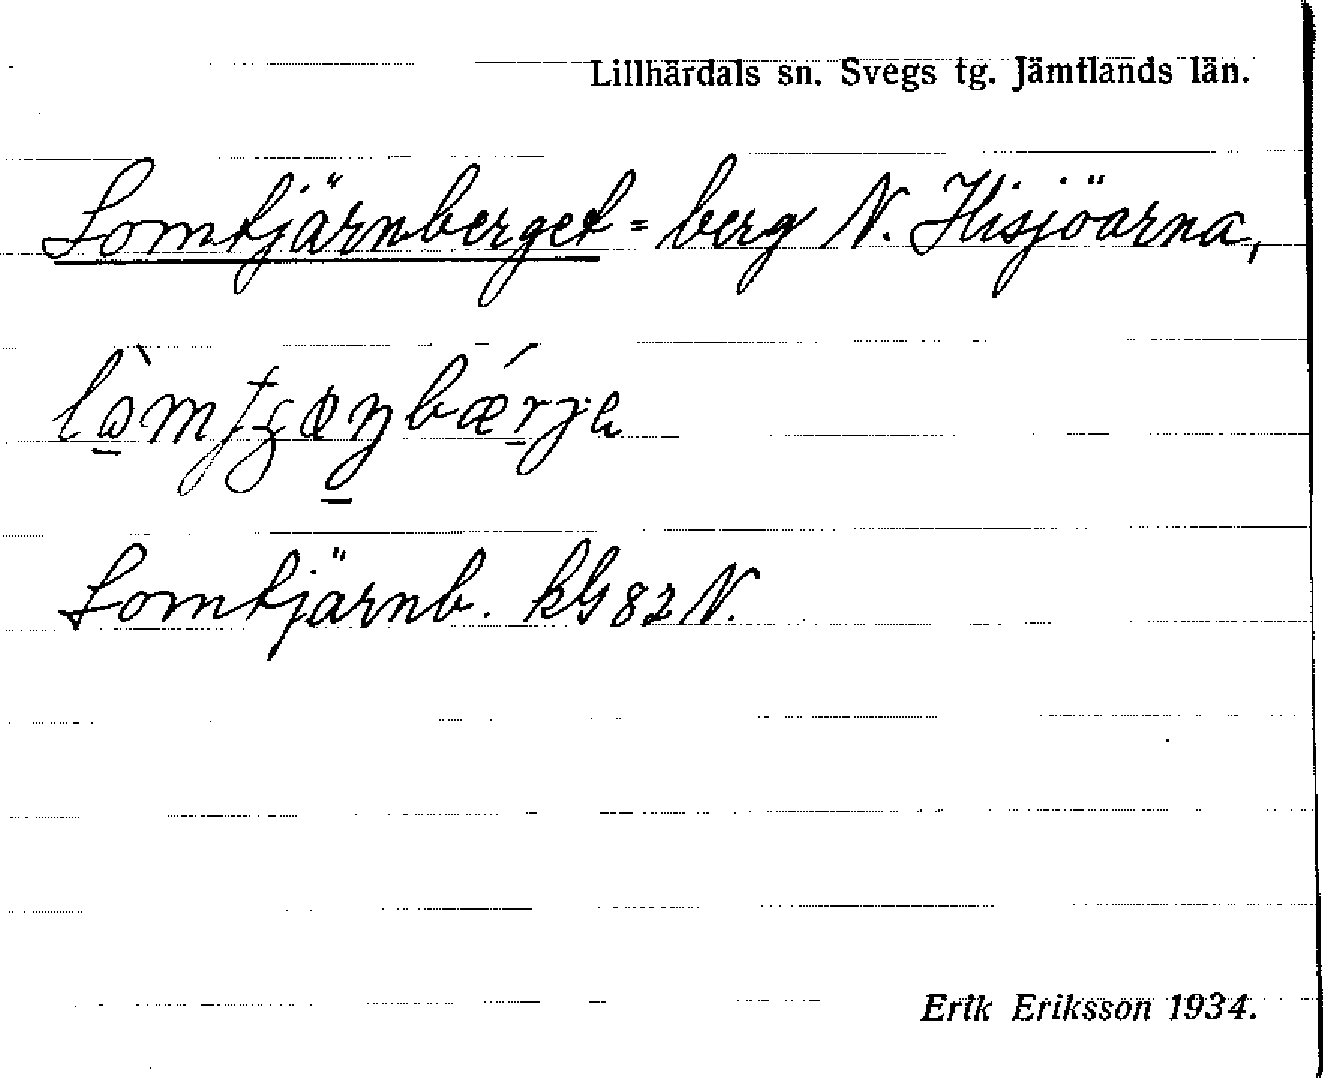 Lillhärdals sn. Svegs tg. Jämtlands län.
Lomtjärnberget = berg N. Hisjöarna,
Lomtjärnb. kG 82 N.
Erik Eriksson 1934.